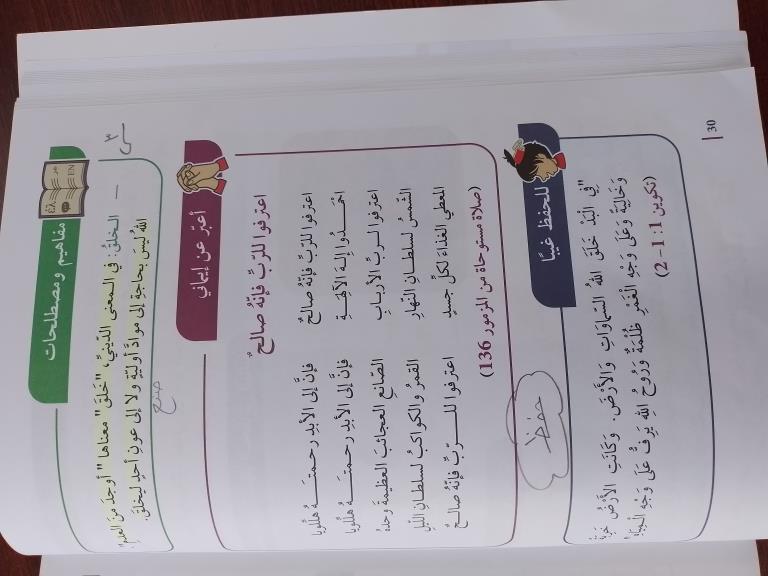 مفاهيم ومصطلحات
٣
— الخلقُ: في المعنى الدّينيّ، "خَلَقَ" معناها "أوجدَ منَ العدمِ".
اللهُ ليسَ بحاجةٍ إلى موادَّ أوّليّةٍ ولا إلى عونِ أحدٍ ليخلقَ.
صنع
أعبّر عن إيماني
اعترفوا للرّبِّ فإنّهُ صالحٌ
اعترفوا للرّبِّ فإنّهُ صالحٌ فإنَّ إلى الأبدِ رحمتَـــــهُ هللويا
احْمَـــدُوا إلهَ الآلهةِ فإنَّ إلى الأبدِ رحمتَـــــهُ هللويا
اعترفوا لـربِّ الأربابِ الصّانعِ العجائبَ العظيمةَ وحدَهُ
الشّمسُ لسلطانِ النّهارِ القمرُ والكواكبُ لسلطانِ اللّيلِ
المعطي الغذاءَ لكلِّ جسدٍ اعترفوا للـــرّبِّ فإنّهُ صالحٌ
(صلاة مستوحاة من المزمور 136)
حفظ
للحفظ غيبًا
"فِي الْبَدْءِ خَلَقَ اللهُ السَّمَاوَاتِ وَالأَرْضَ. وَكَانَتِ الأَرْضُ خَرِبَةً
وَخَالِيَةً وَعَلَى وَجْهِ الْغَمْرِ ظُلْمَةٌ وَرُوحُ اللهِ يَرِفُّ عَلَى وَجْهِ الْمِيَاهِ"
(تكوين 1: 1- 2)
30